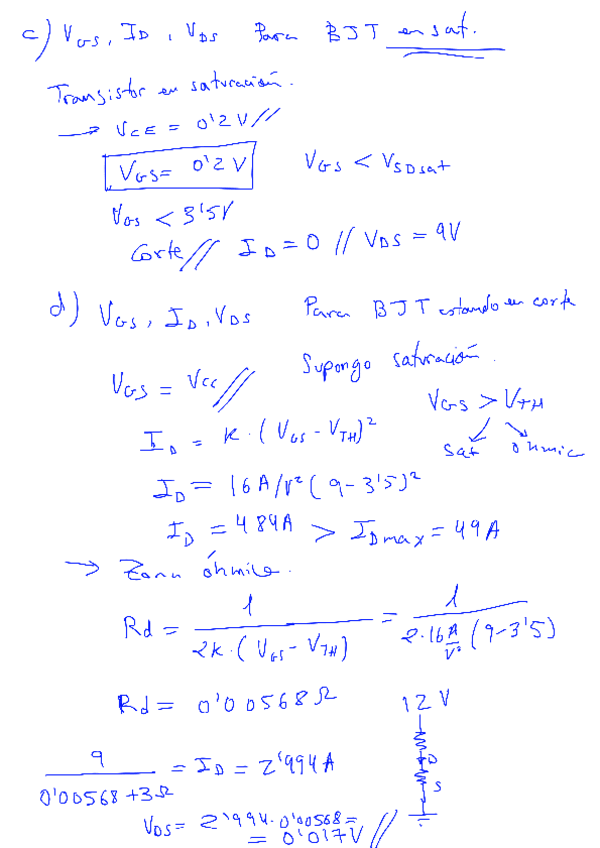 c) VGS, ID, VDS Para BJT en sat.
Transistor en saturación.
→ VCE = 0'2 V //
VGS = 0'2 V VGS < VSDsat
VGS < 3'5V
Corte // ID = 0 // VDS = 9V
d) VGS, ID, VDS Para BJT estando en corte
Supongo saturación.
VGS = Vcc //
VGS > VTH
ID = K · (VGS - VTH)²
sat óhmic
ID = 16 A/V² (9 - 3'5)²
ID = 484A > IDmax = 49 A
→ Zona óhmica.
Rd = 1 / 2K · (VGS - VTH) = 1 / 2·16 A/V² (9 - 3'5)
Rd = 0'00568 Ω
12 V
9 / 0'00568 + 3Ω = ID = 2'994 A
D
S
VDS = 2'994 · 0'00568 =
= 0'017 V //